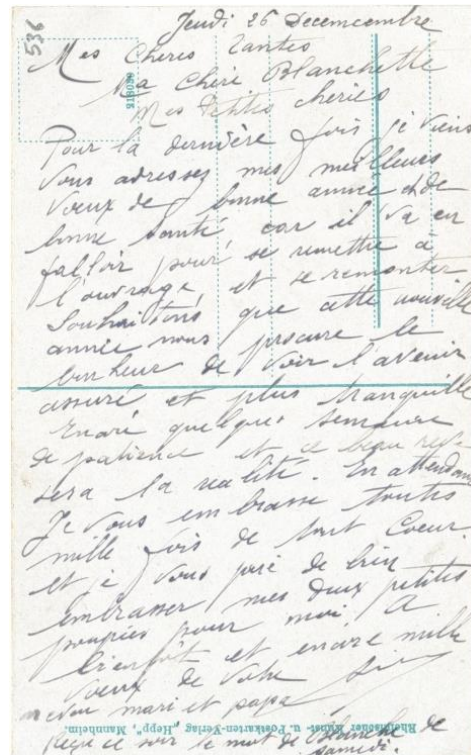 536
Jeudi 26 Decemcembre
Mes Cheres Tantes
Ma Chéri Blanchette
Mes Petites cheries
218039
Pour la dernière fois je viens
vous adressez mes meilleurs
vœux de bonne année et de
bonne santé car il va en
falloir pour se remettre à
l'ouvrage et se remonter
Souhaitons que cette nouvelle
année nous procure le
bonheur de voir l'avenir
assuré et plus tranquille
Encore quelques semaine
de patience et ce beau reve
sera la realité. En attendant
Je vous embrasse toutes
mille fois de tout Coeur
et je vous prie de bien
embrasser mes deux petites
poupées pour moi. A
bientôt et encore mille
voeux de votre
neveu mari et papa
Rheinischer Kunst- u. Postkarten-Verlag „Hepp", Mannheim.
Reçu ce soir le mot de Blanche de
samedi